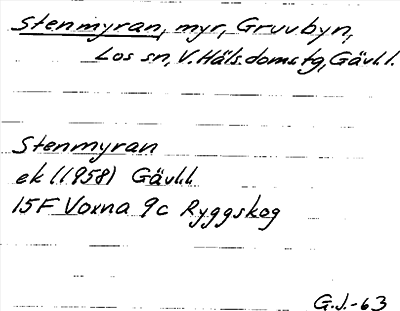 Stenmyran, myr, Gruvbyn,
Los sn, V. Häls. domstg, Gävl. l.
Stenmyran
ek (1958) Gävl.l.
15F Voxna 9c Ryggskog
G.J.-63